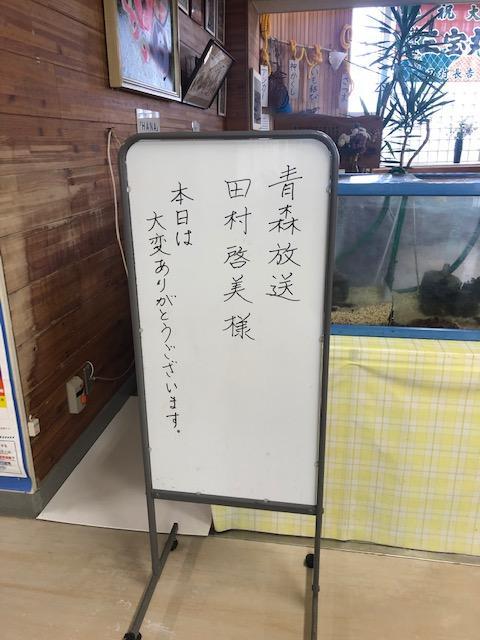 青森放送
田村啓美様
本日は
大変ありがとうございます。
「HANA」
祝大